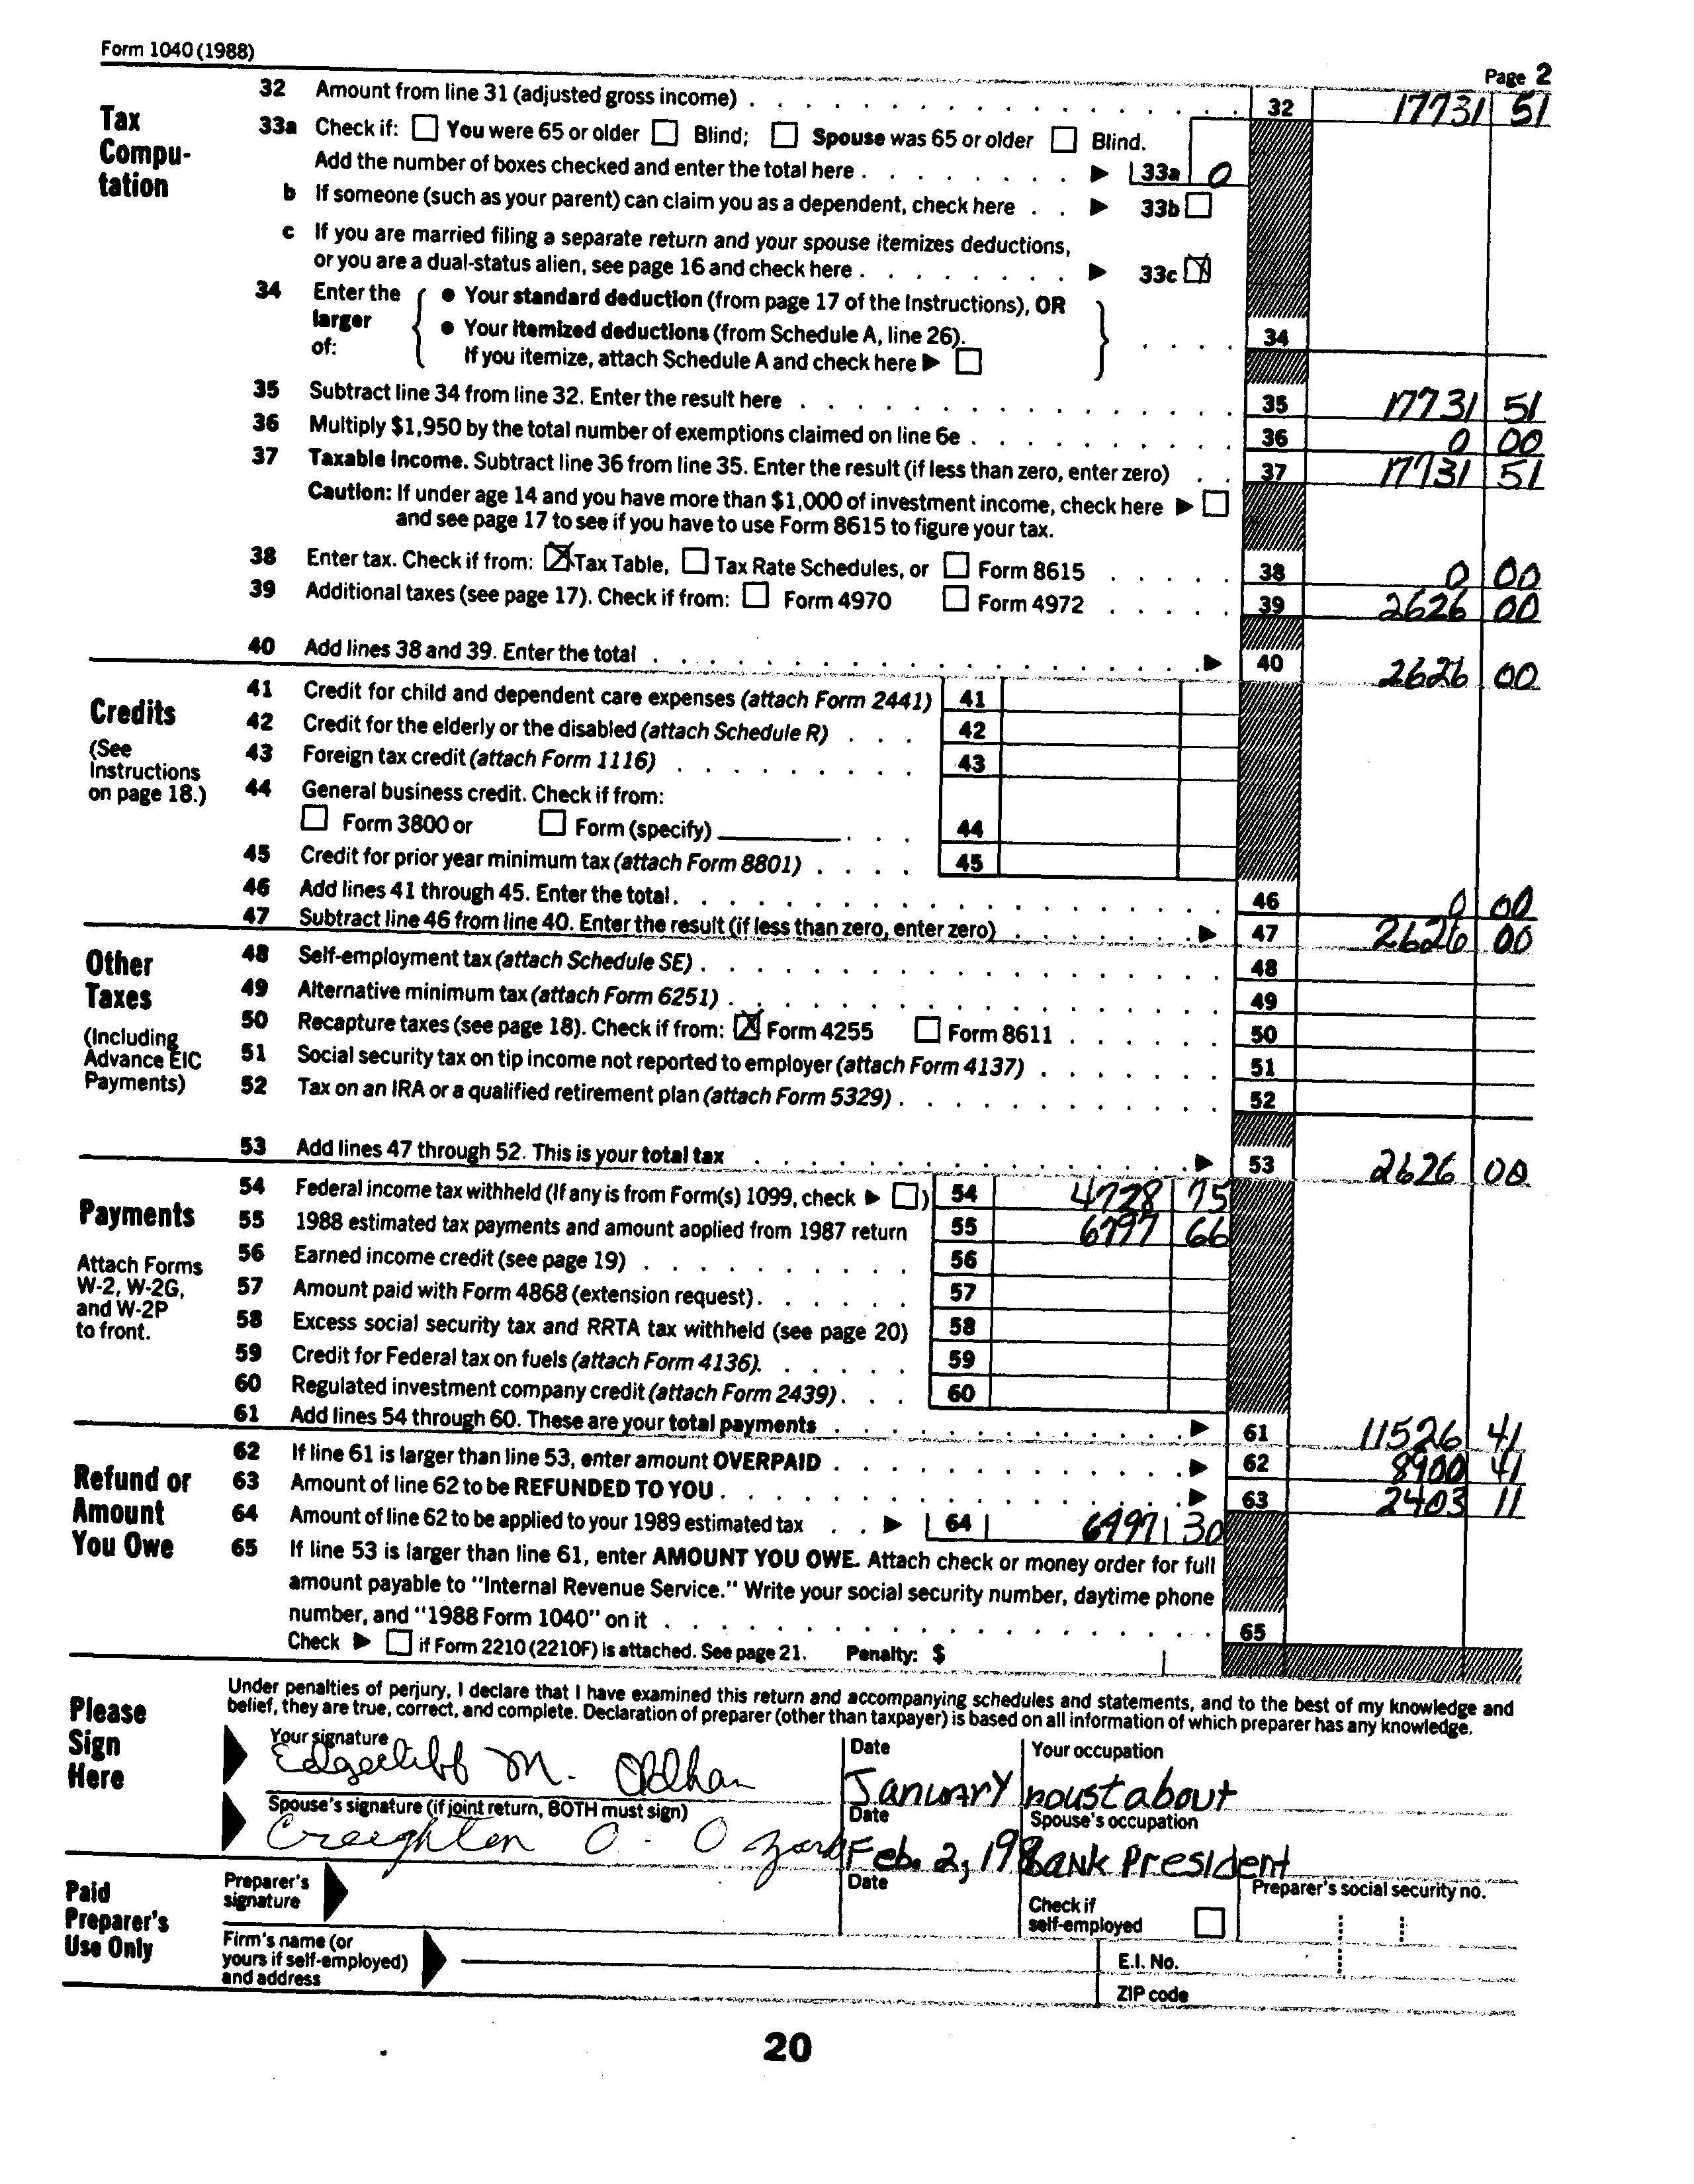 Form 1040 (1988)
Page 2
Tax Compu-tation
32 Amount from line 31 (adjusted gross income) . . . 32 17731 51
33a Check if: ☐ You were 65 or older ☐ Blind; ☐ Spouse was 65 or older ☐ Blind.
Add the number of boxes checked and enter the total here . . . ▶ 33a 0
b If someone (such as your parent) can claim you as a dependent, check here . . ▶ 33b ☐
c If you are married filing a separate return and your spouse itemizes deductions,
or you are a dual-status alien, see page 16 and check here . . . ▶ 33c ☒
34 Enter the larger of: { ● Your standard deduction (from page 17 of the Instructions), OR
● Your itemized deductions (from Schedule A, line 26).
If you itemize, attach Schedule A and check here ▶ ☐ } . . . . 34
35 Subtract line 34 from line 32. Enter the result here . . . 35 17731 51
36 Multiply $1,950 by the total number of exemptions claimed on line 6e . . . 36 0 00
37 Taxable Income. Subtract line 36 from line 35. Enter the result (if less than zero, enter zero) . . 37 17731 51
Caution: If under age 14 and you have more than $1,000 of investment income, check here ▶ ☐
and see page 17 to see if you have to use Form 8615 to figure your tax.
38 Enter tax. Check if from: ☒ Tax Table, ☐ Tax Rate Schedules, or ☐ Form 8615 . . . 38 0 00
39 Additional taxes (see page 17). Check if from: ☐ Form 4970 ☐ Form 4972 . . . 39 2626 00
40 Add lines 38 and 39. Enter the total . . . ▶ 40 2626 00
Credits
(See Instructions on page 18.)
41 Credit for child and dependent care expenses (attach Form 2441) 41
42 Credit for the elderly or the disabled (attach Schedule R) . . . 42
43 Foreign tax credit (attach Form 1116) . . . 43
44 General business credit. Check if from:
☐ Form 3800 or ☐ Form (specify) ____ . . . 44
45 Credit for prior year minimum tax (attach Form 8801) . . . . 45
46 Add lines 41 through 45. Enter the total . . . 46 0 00
47 Subtract line 46 from line 40. Enter the result (if less than zero, enter zero) . . . ▶ 47 2626 00
Other Taxes
(Including Advance EIC Payments)
48 Self-employment tax (attach Schedule SE) . . . 48
49 Alternative minimum tax (attach Form 6251) . . . 49
50 Recapture taxes (see page 18). Check if from: ☒ Form 4255 ☐ Form 8611 . . . 50
51 Social security tax on tip income not reported to employer (attach Form 4137) . . . 51
52 Tax on an IRA or a qualified retirement plan (attach Form 5329) . . . 52
53 Add lines 47 through 52. This is your total tax . . . ▶ 53 2626 00
Payments
Attach Forms W-2, W-2G, and W-2P to front.
54 Federal income tax withheld (If any is from Form(s) 1099, check ▶ ☐) 54 4728 75
55 1988 estimated tax payments and amount applied from 1987 return 55 6797 66
56 Earned income credit (see page 19) . . . 56
57 Amount paid with Form 4868 (extension request) . . . 57
58 Excess social security tax and RRTA tax withheld (see page 20) 58
59 Credit for Federal tax on fuels (attach Form 4136). . . . 59
60 Regulated investment company credit (attach Form 2439) . . . 60
61 Add lines 54 through 60. These are your total payments . . . ▶ 61 11526 41
Refund or Amount You Owe
62 If line 61 is larger than line 53, enter amount OVERPAID . . . ▶ 62 8900 41
63 Amount of line 62 to be REFUNDED TO YOU . . . ▶ 63 2403 11
64 Amount of line 62 to be applied to your 1989 estimated tax . . ▶ 64 6497 30
65 If line 53 is larger than line 61, enter AMOUNT YOU OWE. Attach check or money order for full
amount payable to "Internal Revenue Service." Write your social security number, daytime phone
number, and "1988 Form 1040" on it . . . 65
Check ▶ ☐ if Form 2210 (2210F) is attached. See page 21. Penalty: $
Please Sign Here
Under penalties of perjury, I declare that I have examined this return and accompanying schedules and statements, and to the best of my knowledge and
belief, they are true, correct, and complete. Declaration of preparer (other than taxpayer) is based on all information of which preparer has any knowledge.
Your signature Date Your occupation
Edgecliff M. Oldham January roustabout
Spouse's signature (if joint return, BOTH must sign) Date Spouse's occupation
Creighton O. Ozark Feb. 2, 198 Bank President
Paid Preparer's Use Only
Preparer's signature Date Check if self-employed ☐ Preparer's social security no.
Firm's name (or yours if self-employed) and address
E.I. No.
ZIP code
20